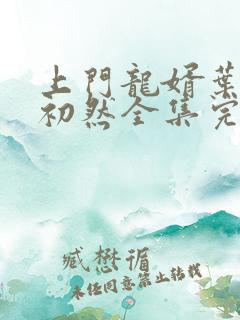 上門龍婿葉
初然全集完
臧懋循
未经同意禁止转载